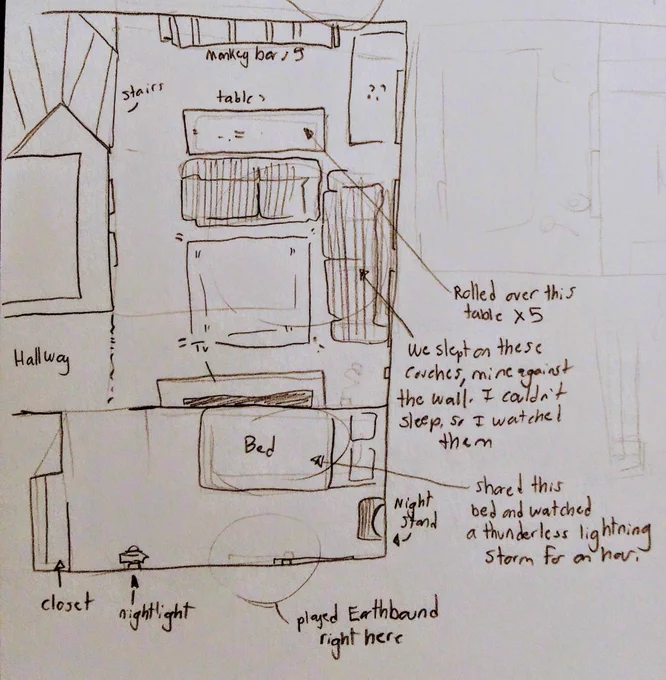 monkey bars
stairs
table
Rolled over this
table x5
We slept on these
couches, mine against
the wall. I couldn't
sleep, so I watched
them
TV
Hallway
Bed
shared this
bed and watched
a thunderless lightning
storm for an hour
Night
stand
closet
nightlight
played Earthbound
right here